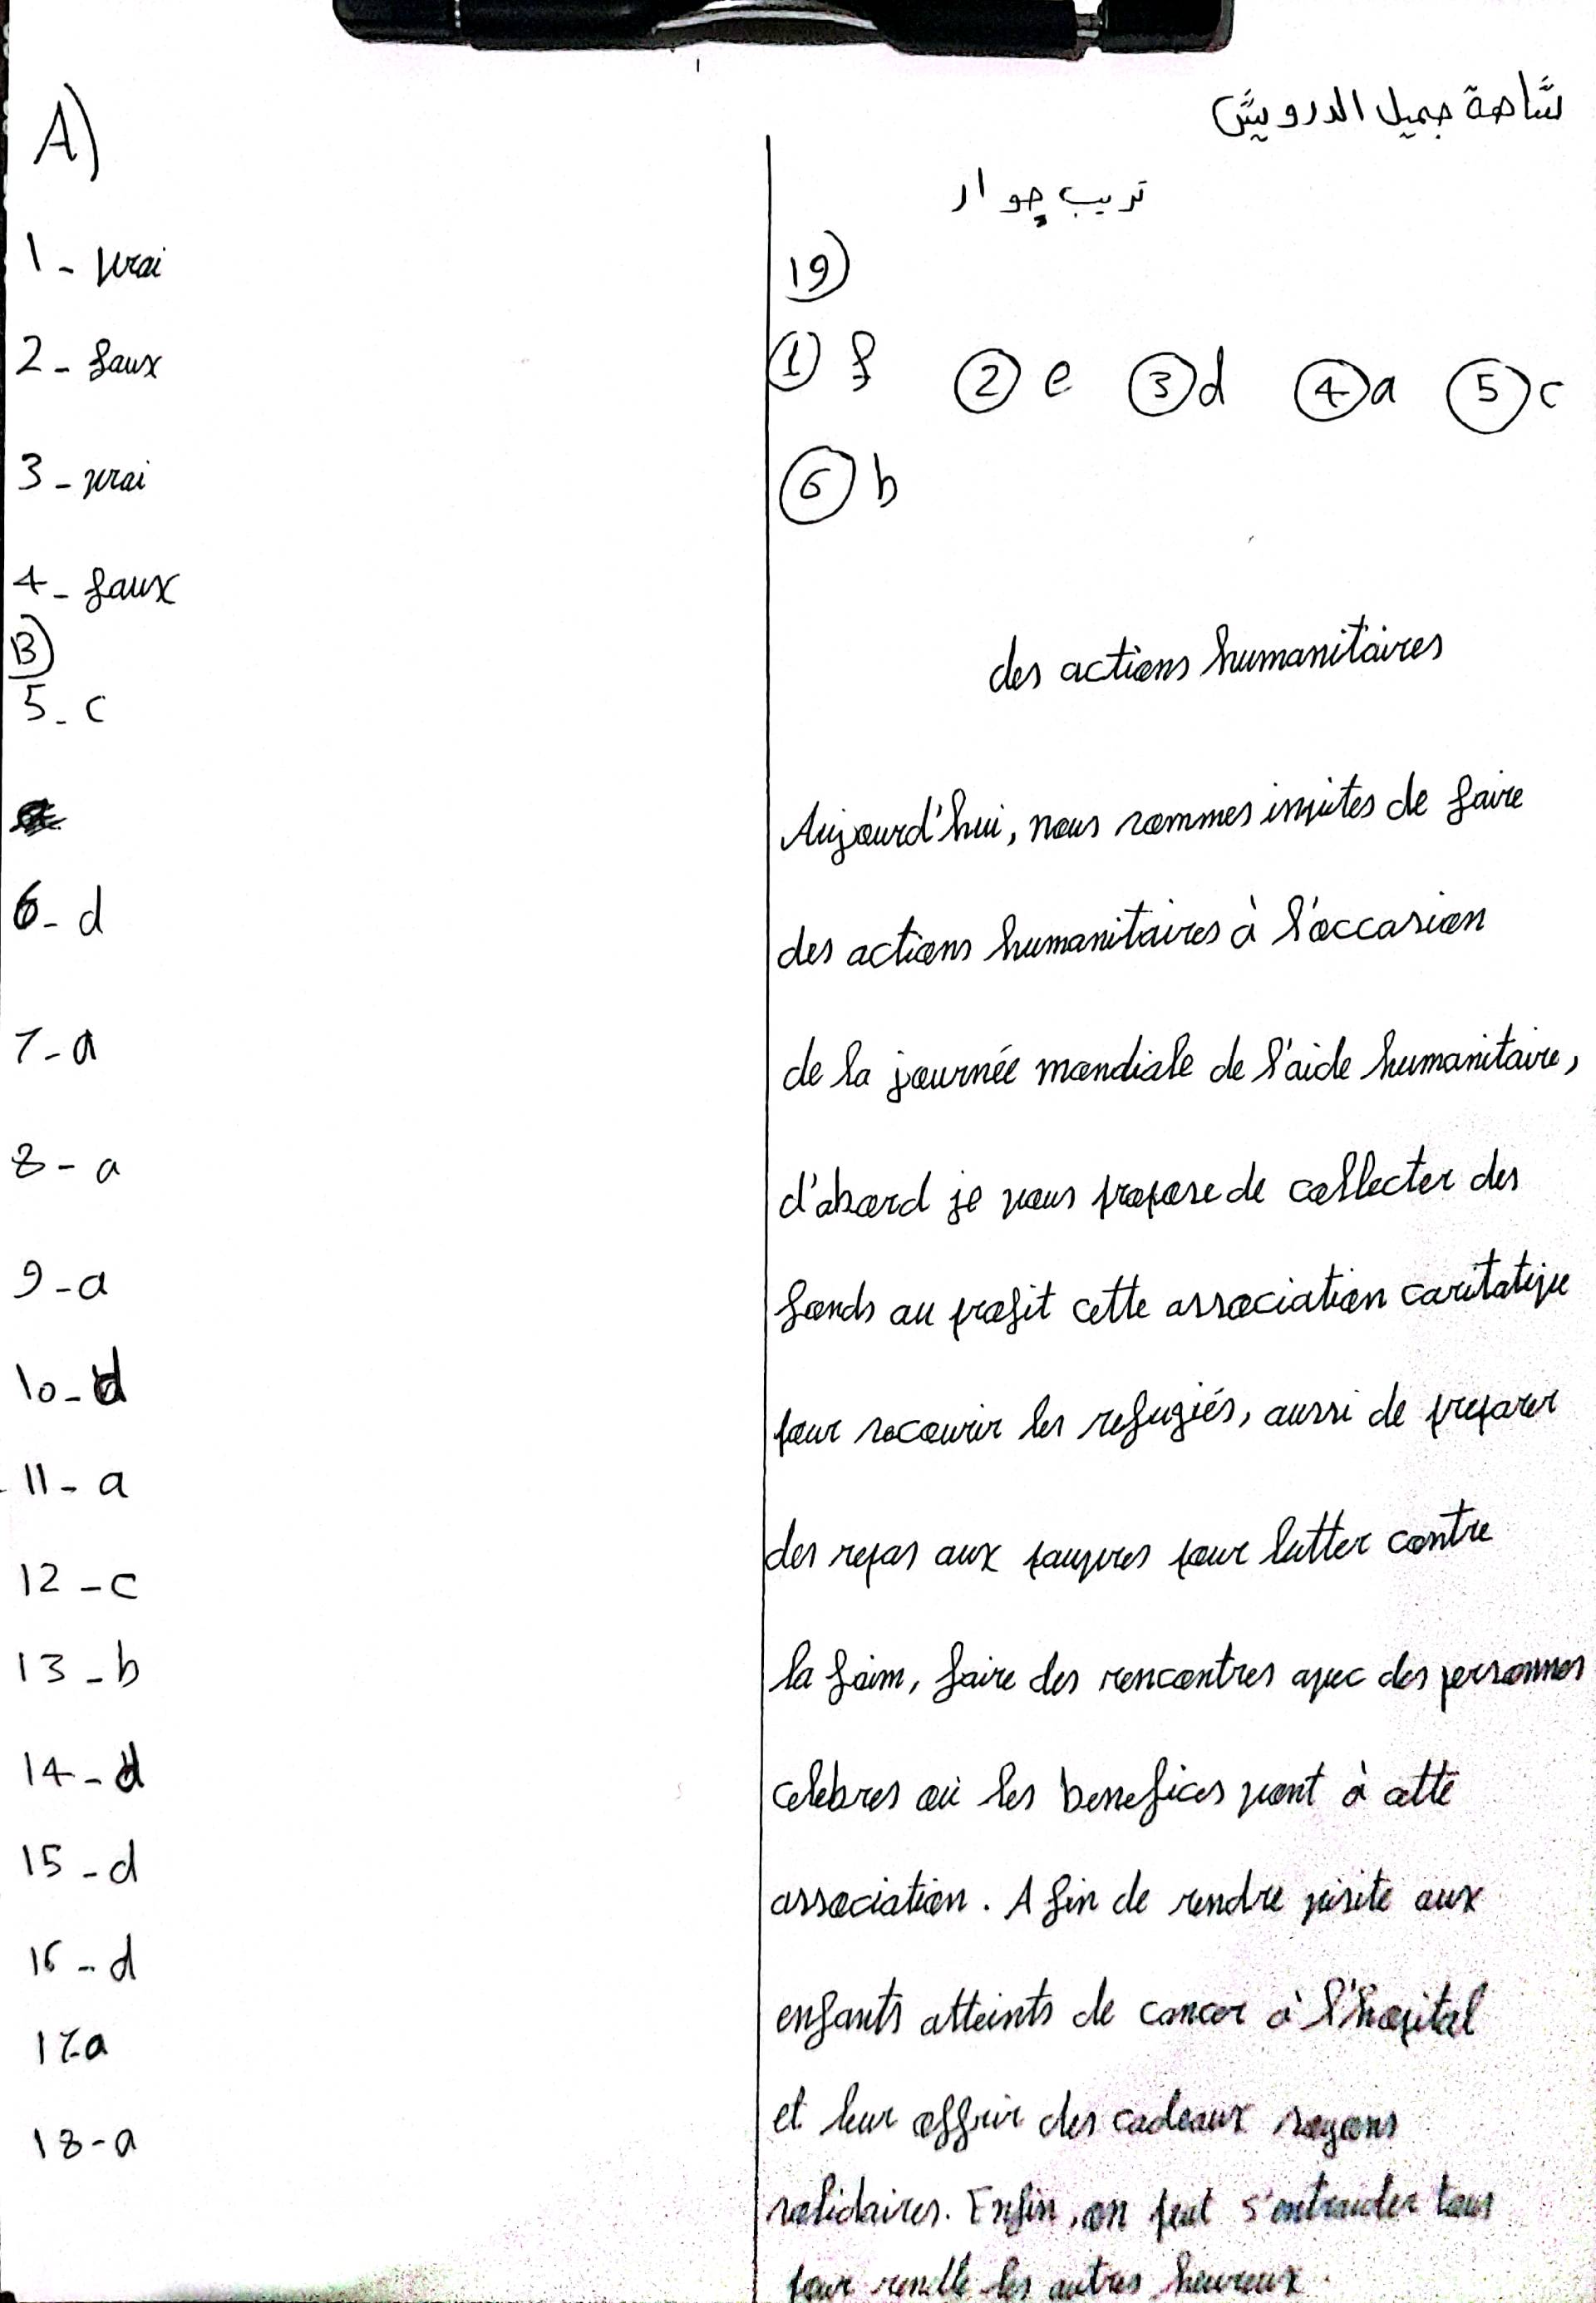 شاهة جميل الدرويش
A)
1 - vrai
2 - faux
3 - vrai
4 - faux
B)
5 - c
6 - d
7 - a
8 - a
9 - a
10 - d
11 - a
12 - c
13 - b
14 - d
15 - d
16 - d
17 - a
18 - a
ترتيب حوار
19)
1 f 2 e 3 d 4 a 5 c
6 b
des actions humanitaires
Aujourd'hui, nous sommes invites de faire
des actions humanitaires à l'occasion
de la journée mondiale de l'aide humanitaire,
d'abord je vous propose de collecter des
fonds au profit cette association caritative
pour secourir les refugiés, aussi de preparer
des repas aux pauvres pour lutter contre
la faim, faire des rencontres avec des personnes
celebres où les benefices vont à cette
association. A fin de rendre visite aux
enfants atteints de cancer à l'hopital
et leur offrir des cadeaux soyons
solidaires. Enfin, on peut s'entraider tous
pour rendre les autres heureux.